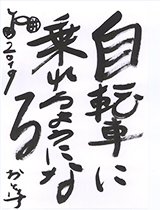 自転車に
乗れるようにな
る
2019